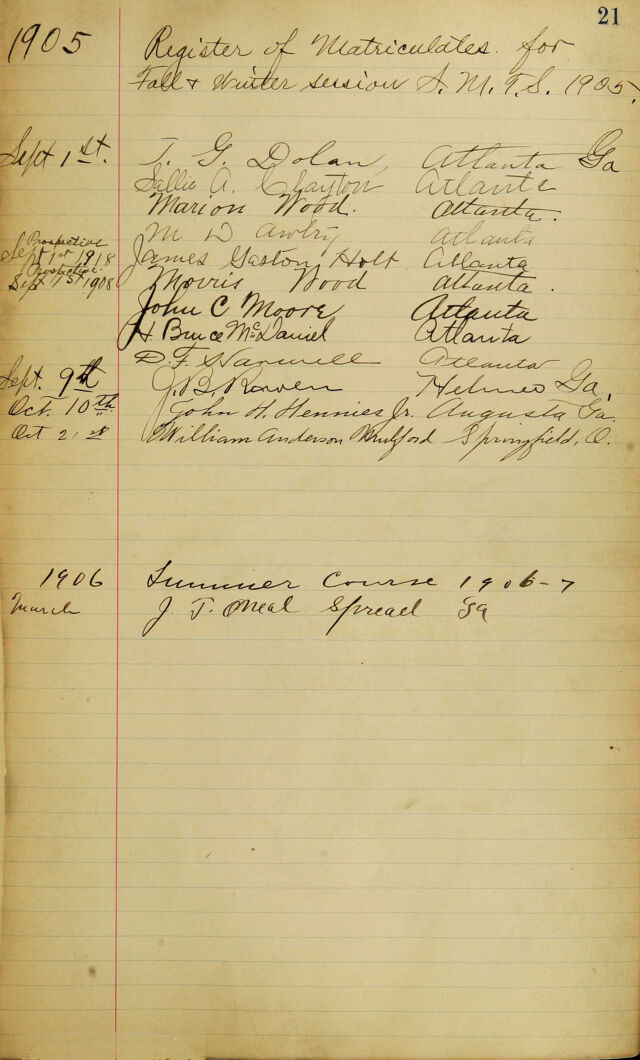 21
1905 Register of Matriculates for
Fall & Winter session S. M. T. S. 1905.
Sept 1st. T. G. Dolan, Atlanta Ga
Sallie A. Clayton Atlanta
Marion Wood. Atlanta.
M D Awtry Atlanta
Prospective
Sept 1st 1918 James Gaston Holt Atlanta
Prospective
Sept 1st 1908 Morris Wood Atlanta.
John C Moore Atlanta
H Bruce McDaniel Atlanta
D. F. Atlanta
Sept. 9th J. B. Raven Ga,
Oct. 10th John H. Hennies Jr. Augusta Ga.
Oct 21st William Anderson Mulford Springfield, O.
1906 Summer Course 1906-7
March J. T. Neal Spread Ga